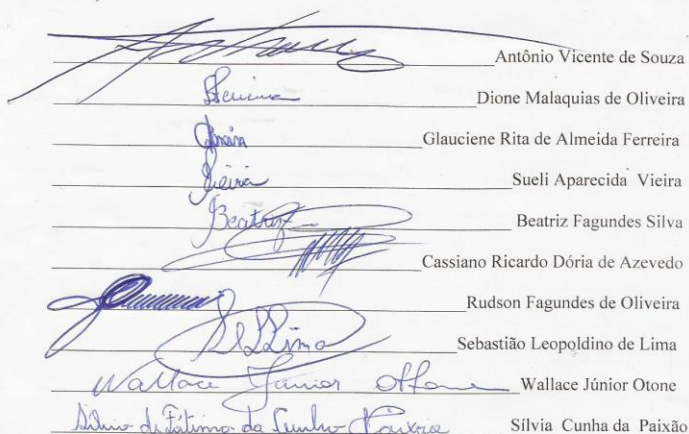 Antônio Vicente de Souza
Dione Malaquias de Oliveira
Glauciene Rita de Almeida Ferreira
Vieira Sueli Aparecida Vieira
Beatriz Beatriz Fagundes Silva
Cassiano Ricardo Dória de Azevedo
Rudson Fagundes de Oliveira
Sebastião Leopoldino de Lima
Wallace Júnior Wallace Júnior Otone
de Fátima da Cunha Paixão Sílvia Cunha da Paixão